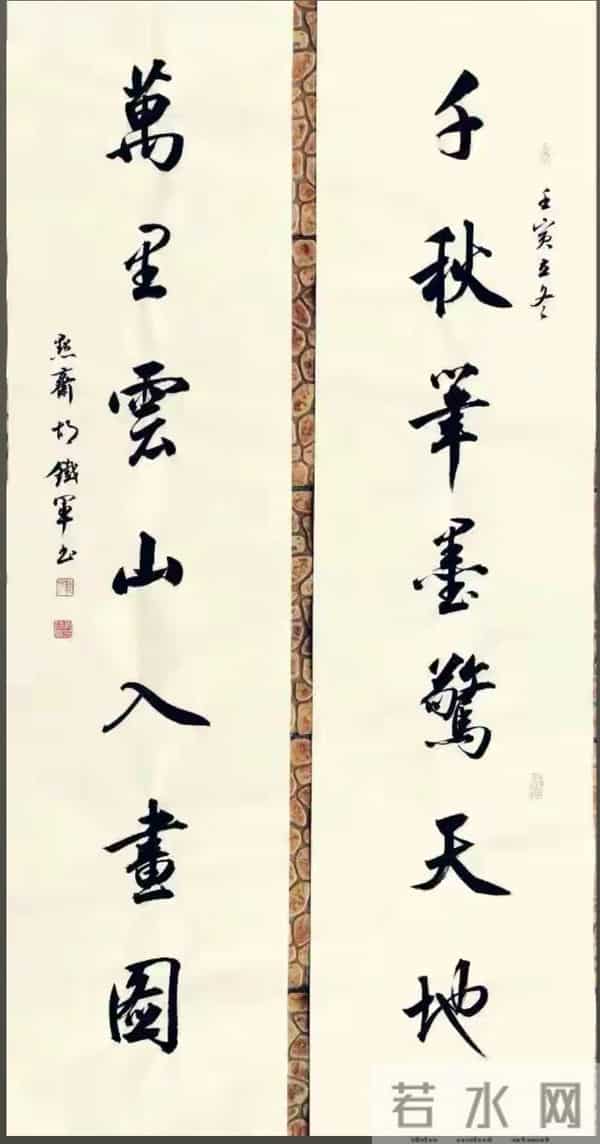 壬寅立冬
千秋筆墨驚天地
萬里雲山入畫圖
齋胡鐵軍书
若水网